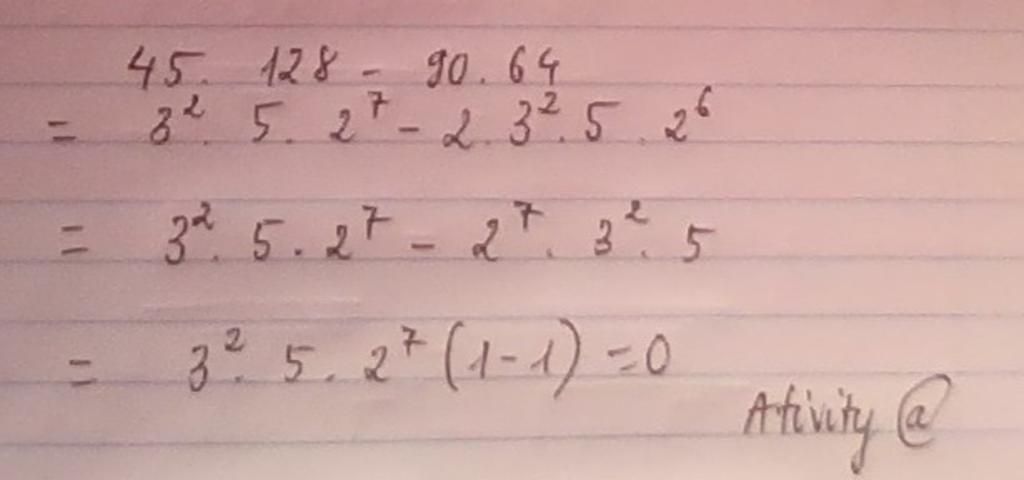 45. 128 - 90. 64
= 3². 5. 2⁷ - 2. 3². 5 . 2⁶
= 3². 5. 2⁷ - 2⁷. 3². 5
= 3². 5. 2⁷ (1-1) = 0
Ativity @